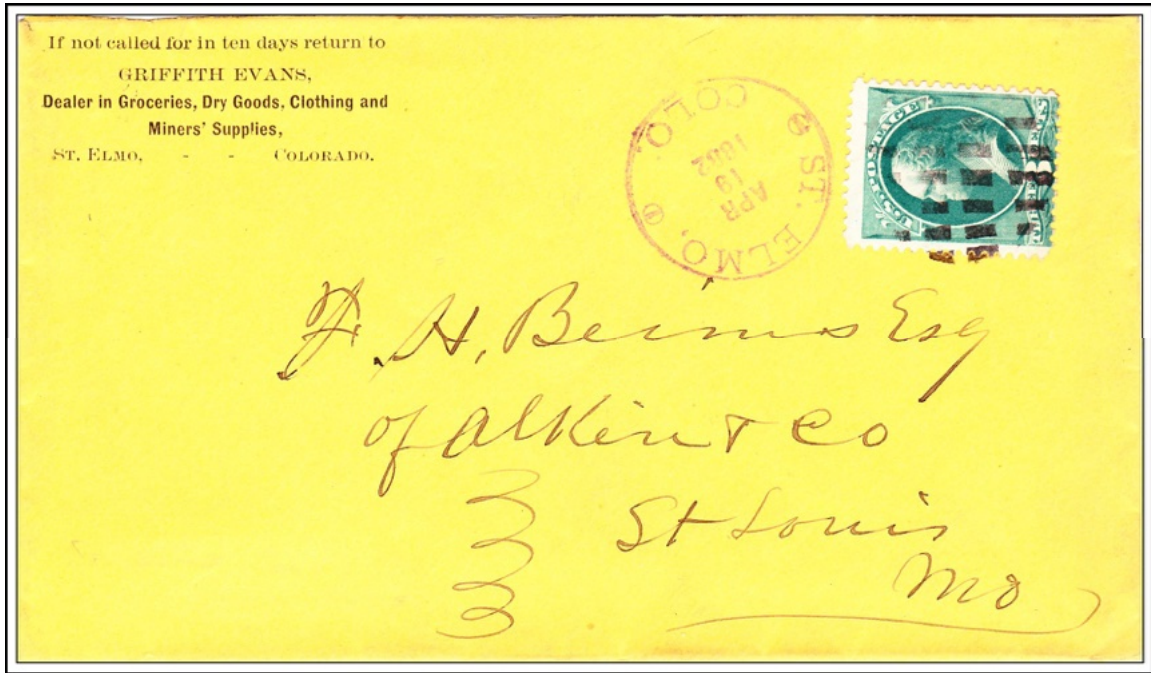 If not called for in ten days return to
GRIFFITH EVANS,
Dealer in Groceries, Dry Goods, Clothing and
Miners' Supplies,
ST. ELMO, - - COLORADO.
ST. ELMO, COLO.
APR
19
1882
U.S. POSTAGE
H. Esq
of & Co
St Louis
Mo